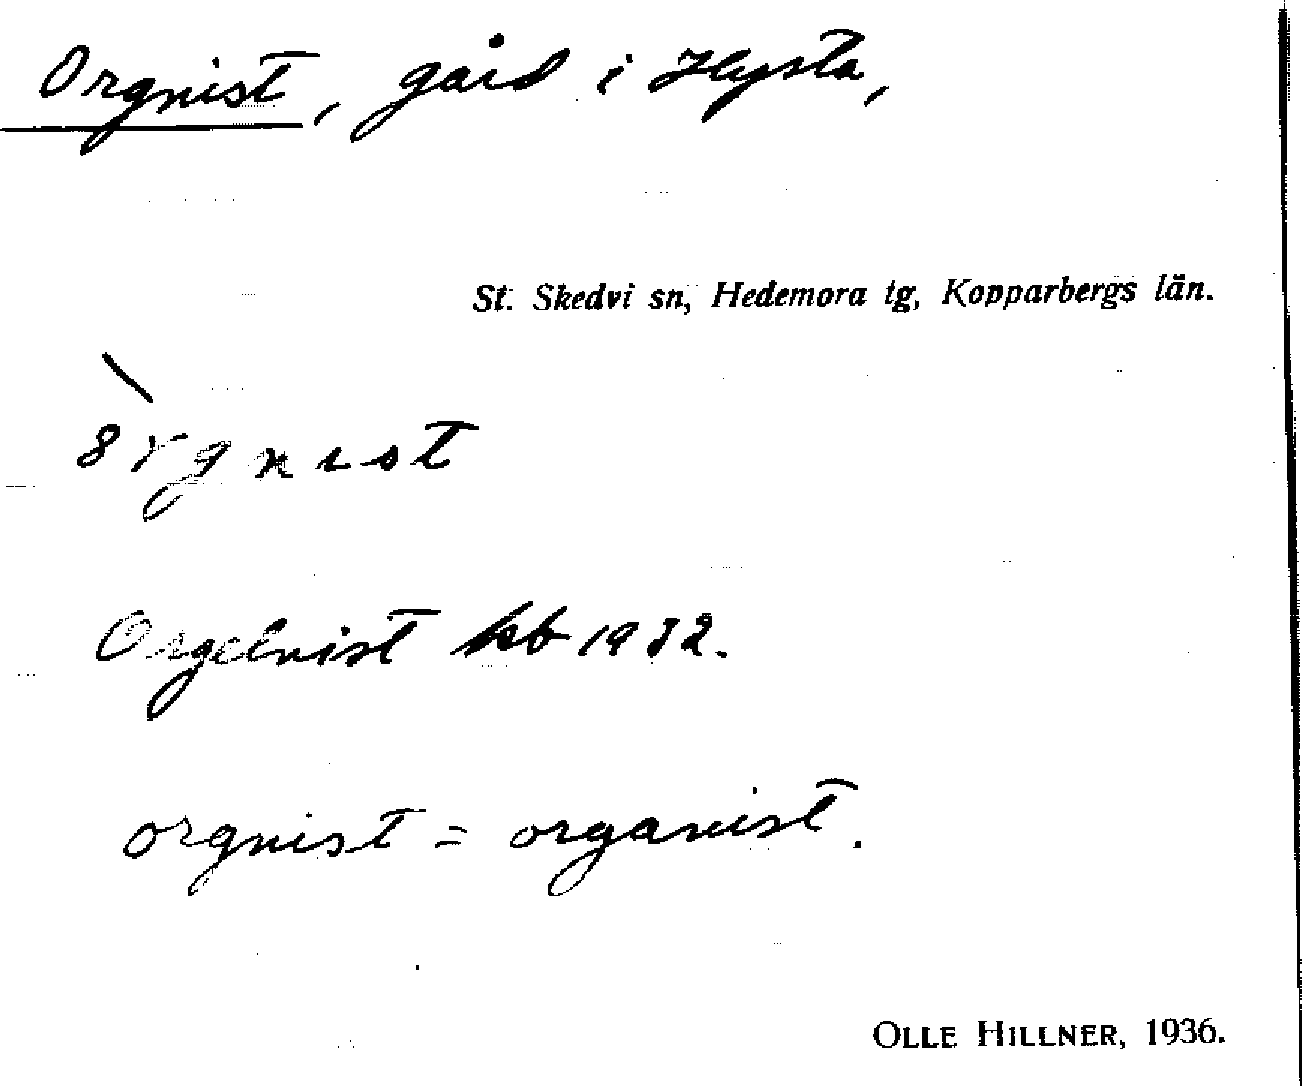 Orgnist, gård i Hysta,
St. Skedvi sn, Hedemora tg, Kopparbergs län.
Orgelnist kb 1932.
orgnist = organist.
OLLE HILLNER, 1936.